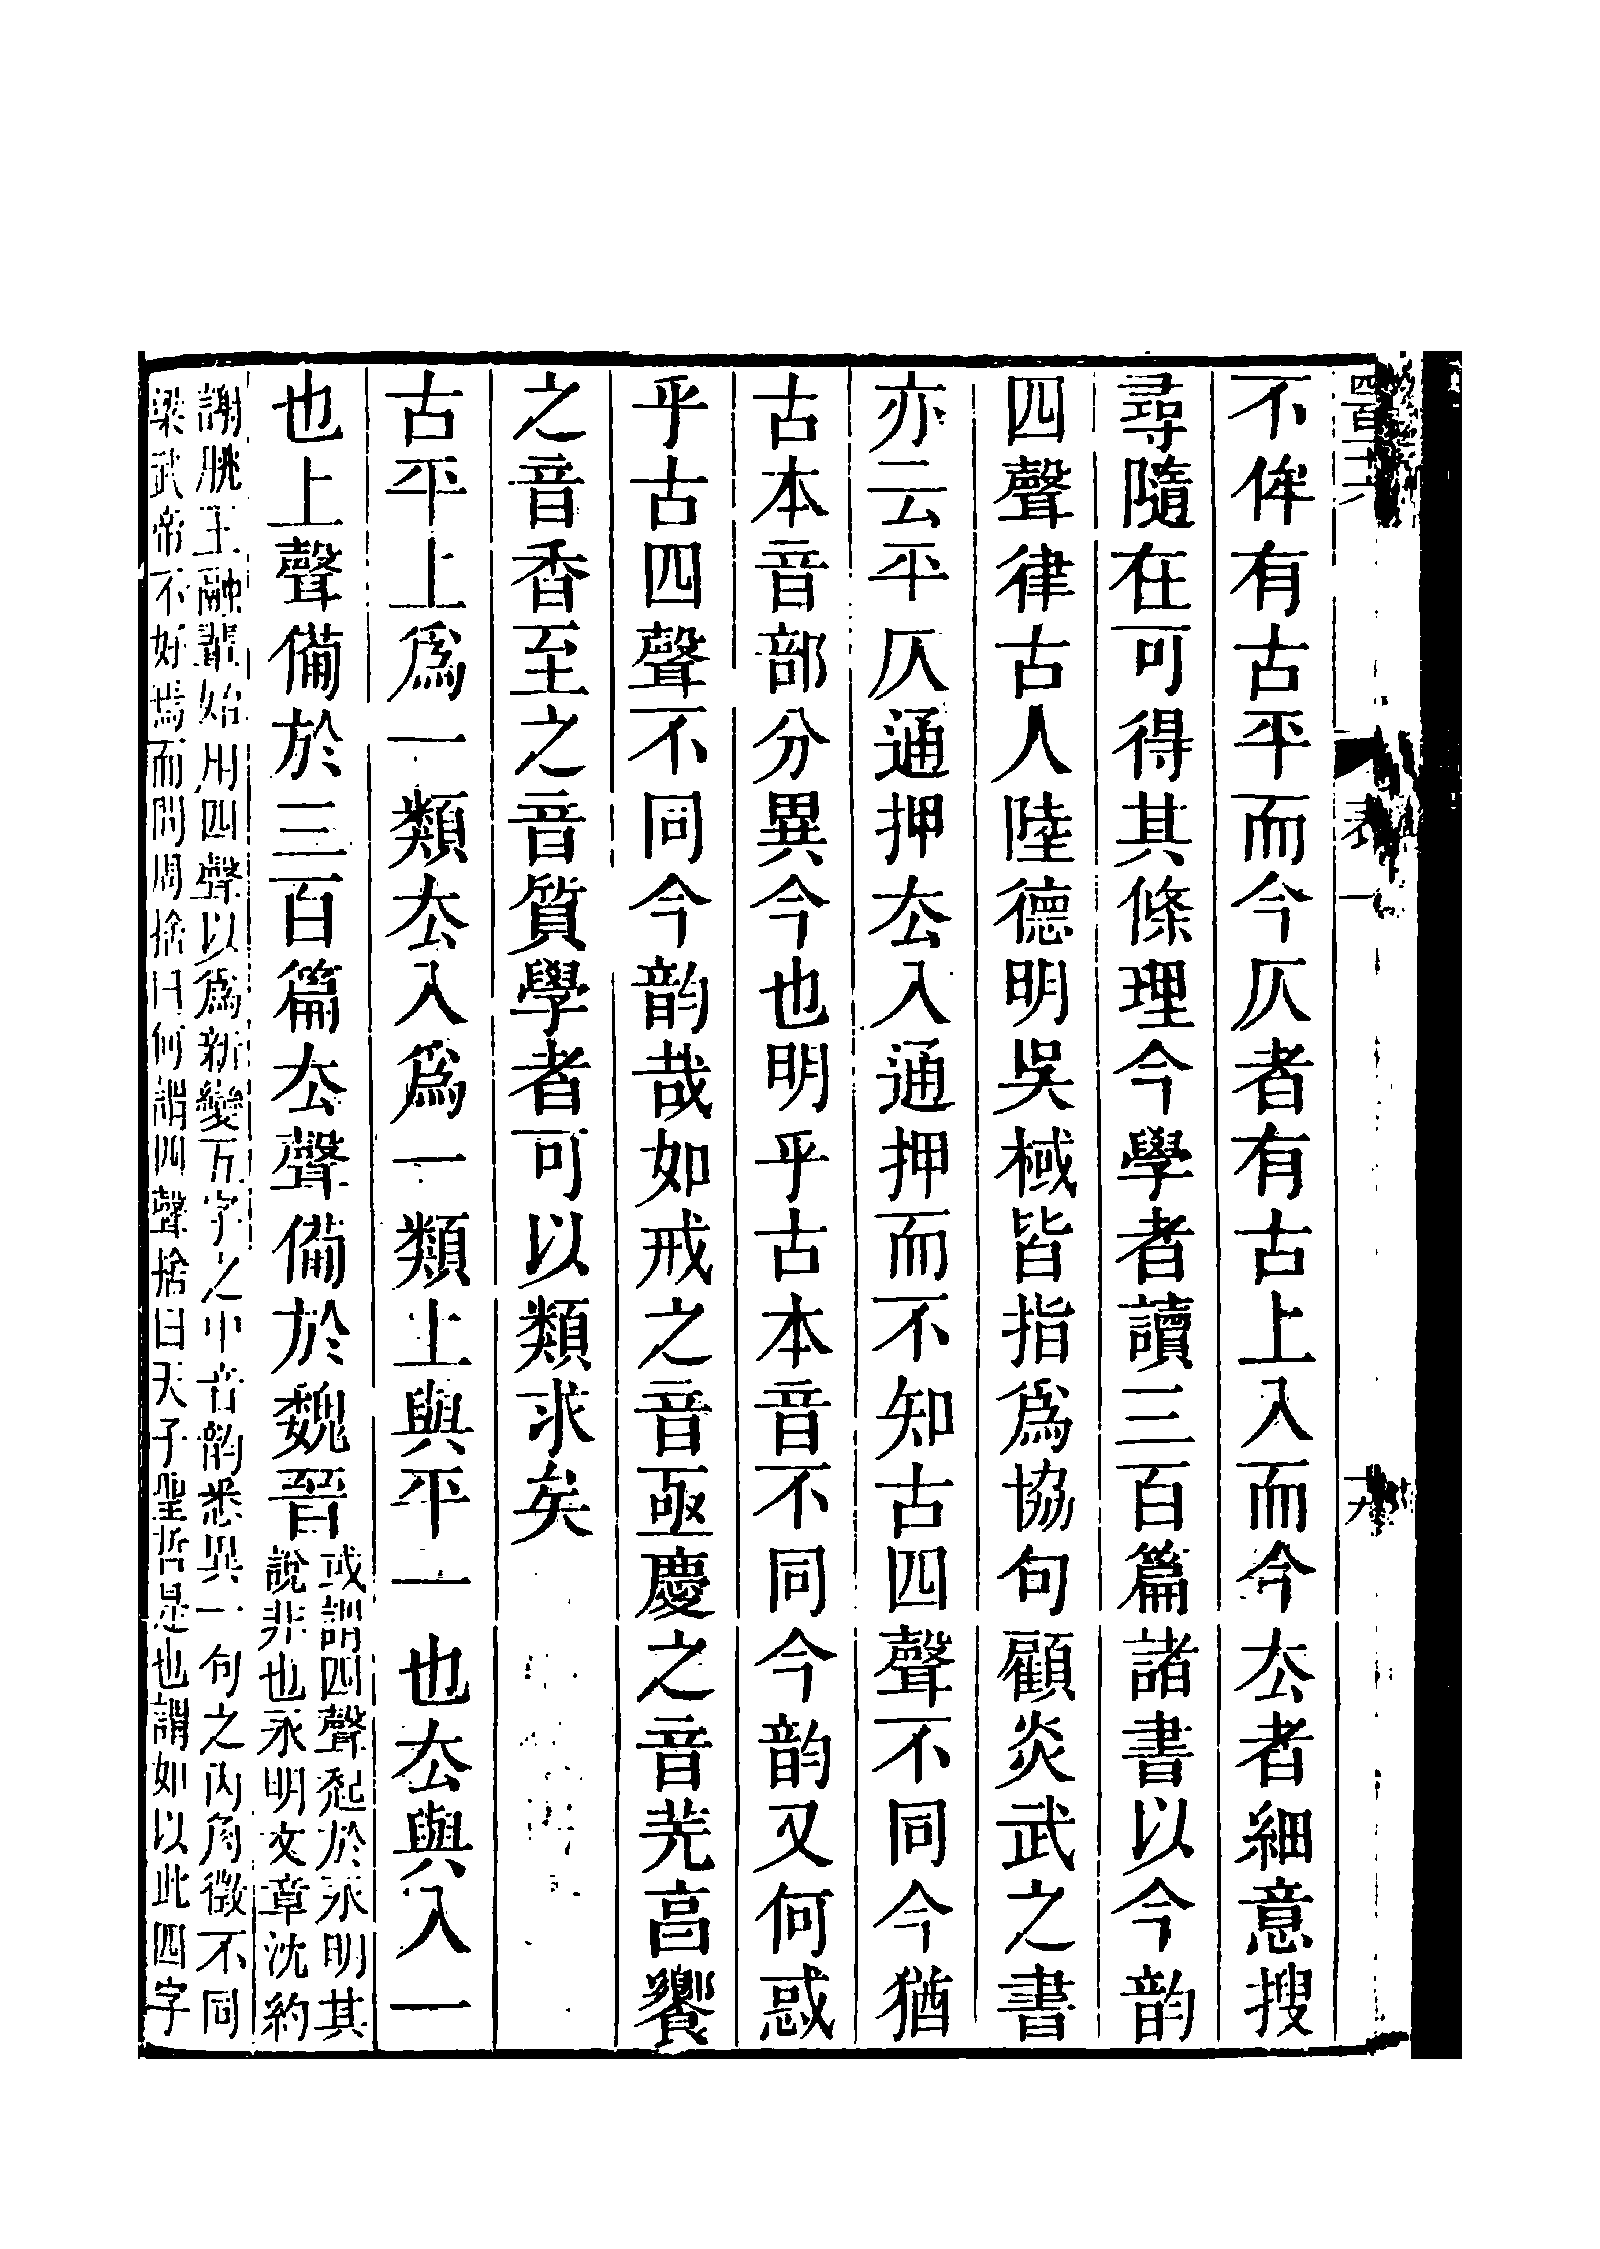 不侔有古平而今仄者有古上入而今厺者細意搜
尋隨在可得其條理今學者讀三百篇諸書以今韵
四聲律古人陸德明吳棫皆指爲協句顧炎武之書
亦云平仄通押厺入通押而不知古四聲不同今猶
古本音部分異今也明乎古本音不同今韵又何惑
乎古四聲不同今韵哉如戒之音亟慶之音羌𠅫饗
之音香至之音質學者可以類求矣
古平上爲一類厺入爲一類上與平一也厺與入一
也上聲備於三百篇厺聲備於魏晉
或謂四聲起於永明其
說非也永明文章沈約
謝朓王融輩始用四聲以爲新變五字之中音韵悉異一句之內角徵不同
梁武帝不好焉而問周捨曰何謂四聲捨曰天子聖哲是也謂如以此四字
表一